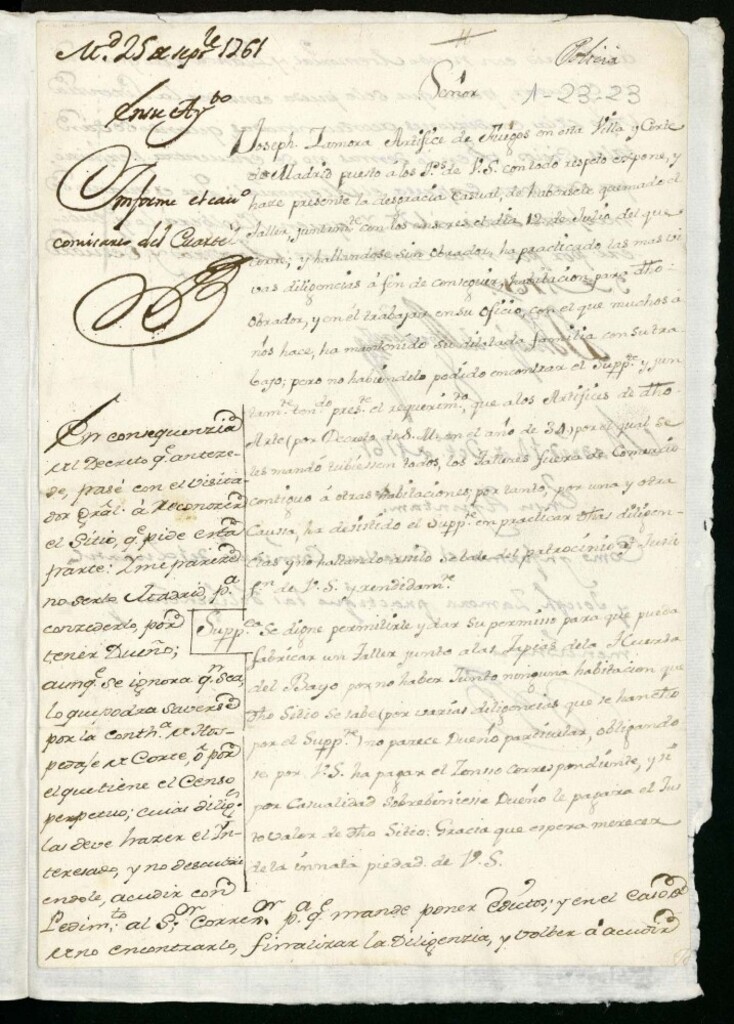 M.d 25 de sepre 1761
En su Ayto
Informe el cavo
comisario del Cuartel
Policia
1-23-23
Señor
Joseph Zamora Artifize de Fuegos en esta Villa, y Corte
de Madrid puesto a los Ps de V.S. con todo respeto expone, y
haze presente la desgracia casual, de habersele quemado el
Taller, juntamte con los enseres el dia 12 de Julio del que
corre; y hallandose sin obrador, ha practicado las mas vi
vas diligencias á fin de conseguir, habitacion para dho
obrador, y en él trabajar en su oficio, con el que muchos a
ños hace, ha mantenido su dilatada familia con su tra
bajo; pero no habiendolo podido encontrar el Suppte y jun
tamte tendo preste el requerimto, que a los Artifices de dho
Arte (por Decreto de S.M. en el año de 34) por el qual se
les mandó tubiessen todos, los Talleres fuera de Comercio
contiguo á otras habitaciones; por tanto, por una y otra
Caussa, ha desistido el Suppte en practicar dhas diligen
cias y no hallando asilo se bale del patrocinio de
de V.S. y rendidamte
Suppca Se digne permitirle y dar su permisso para que pueda
fabricar un Taller junto a las Tapias de la Huerta
del Bayo por no haber Junto ninguna habitacion que
dho Sitio se sabe (por varias diligencias que se han hecho
por el Suppte) no parece Dueño particular, obligando
se por V.S. ha pagar el Zensso correspondiente, y si
por Casualidad sobrebiniesse Dueño le pagara el Jus
to valor de dho Sitio: Gracia que espera merecer
de la innata piedad de V.S.
En consequenzia
del Decreto qe antece-
de, pasé con el Visita-
dor Gral. á Reconozer
el Sitio, qe pide esta
parte: I me pareze
no serlo Madrid, pa
concederlo, por
tener Dueño;
aunqe se ignora qn sea,
lo que podra saverse
por la Conthª de Hos-
pedaje de Corte, ó por
el que tiene el Censo
perpetuo; cuias diligs
las deve hazer el In-
teresado, y no descubri
endole, acudir con
Pedimto al Sor Corrror pa qe mande poner Edicto; y en el caso
de no encontrarlo, finalizar la Diligenzia, y volber a acudir